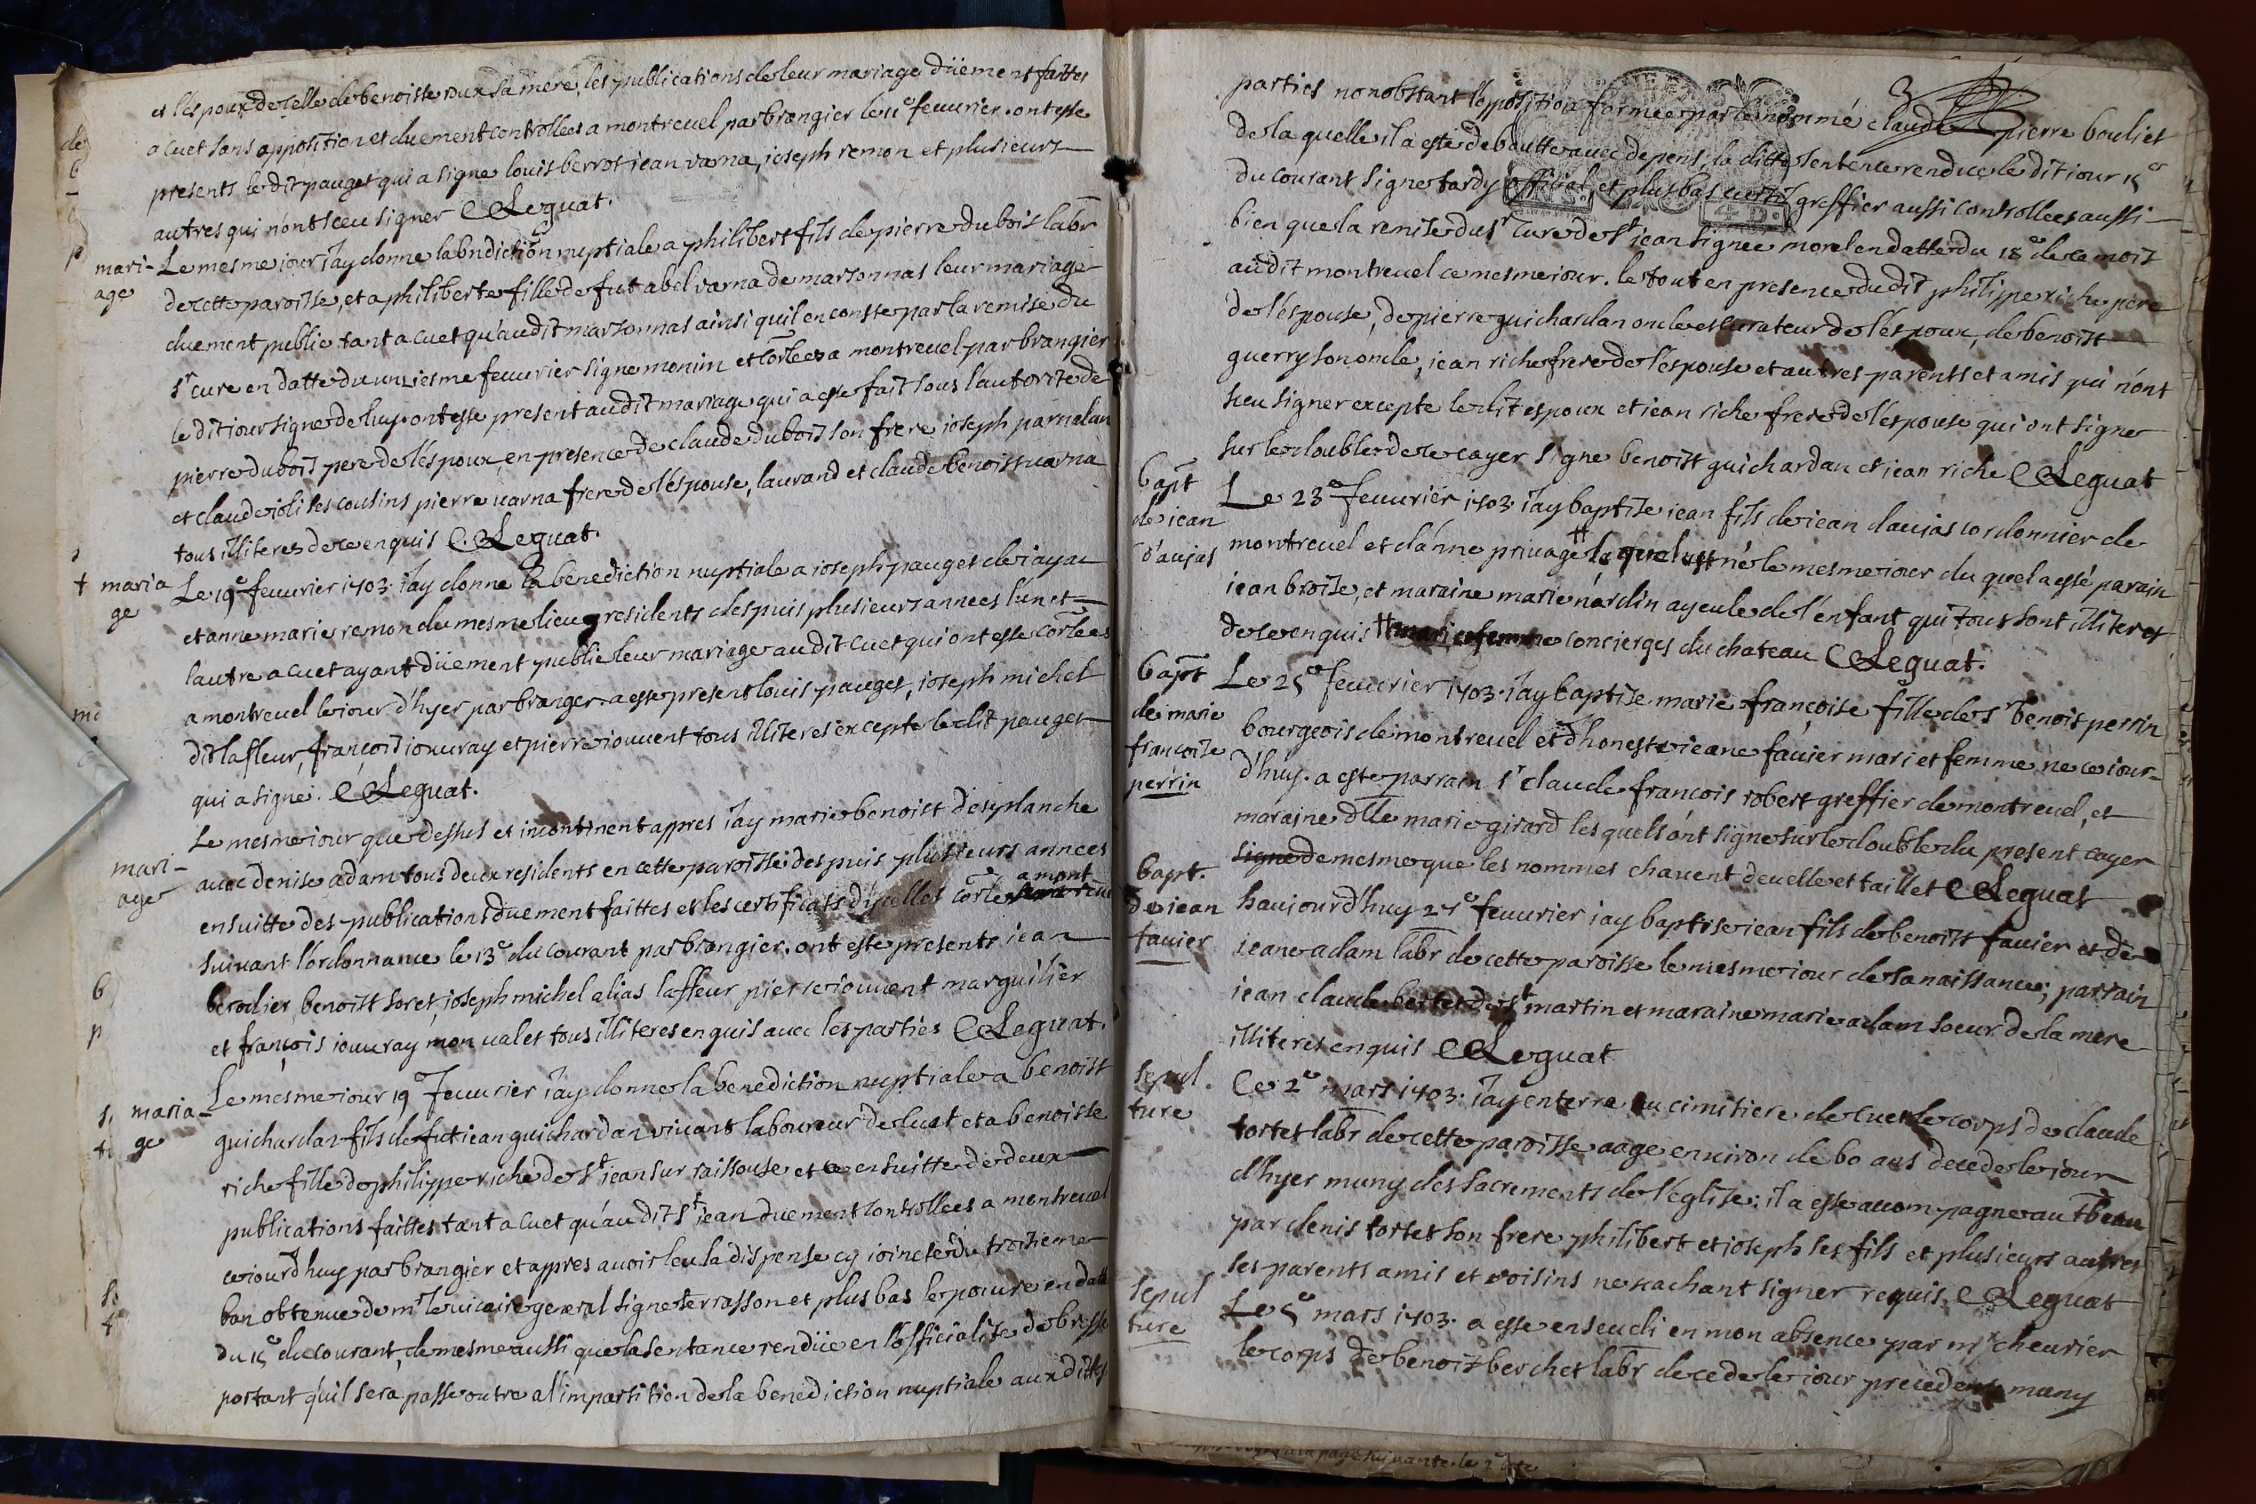 et l'espoux de celle de benoiste roux sa mere, les publications de leur mariage düement faittes
a cuet sans opposition et duement controllees a montrevel par brangier le 11e feuurier. ont este
presents ledit pauget qui a signe louis berrod jean varna, joseph remon et plusieurs
autres qui n'ont sceu signer C Leguat.
mari-
age
Le mesme iour J'ay donne la bndiction nuptiale a philibert fils de pierre dubois labr
de cette paroisse, et a philiberte fille de fut abel varna de marsonnas leur mariage
duement publie tant a cuet qu'audit marsonnas ainsi quil en conste par la remise du
sr cure en datte du unziesme feuurier signe monin et corlees a montreuel par brangier
le dit iour signe de luy. ont este present audit mariage qui a este fait sous l'autorité de
pierre dubois pere de l'espoux, en presence de claude dubois son frere joseph parnalan
et claude joli ses cousins pierre varna frere de l'espouse, laurand et claude benoist varna
tous illiteres de ce enquis C Leguat.
maria
ge
Le 19e feuurier 1703. J'ay donne la benediction nuptiale a ioseph pauget de iayac
et anne marie remon du mesme lieu residents despuis plusieurs annees l'un et
l'autre a cuet ayant düement publie leur mariage audit cuet qui ont este corlees
a montreuel le iour d'hyer par branger. a este present louis pauget, ioseph michel
dit lafleur, françois iouuray et pierre iouuent tous illiteres excepte le dit pauget
qui a signe. C Leguat.
mari-
age
Le mesme iour que dessus et incontinent appres J'ay marie benoist desplanche
auec denise adam tous deux residents en cette paroisse despuis plusieurs annees
ensuitte des publications duement faittes et les certificats d'icelles corles a mont
suiuant l'ordonnance le 13e du courant par brangier. ont este presents iean
berodier, benoist soret, ioseph michel alias laffleur pierre iouuent marguilier
et françois iouuray mon ualet tous illiteres enquis auec les parties C Leguat.
maria-
ge
Le mesme iour 19e feuurier J'ay donne la benediction nuptiale a benoist
guichardan fils de fut iean guichardan viuant laboureur de cuet et a benoiste
riche fille de philippe riche de st iean sur raissouse et ensuitte de deux
publications faittes tant a cuet qu'audit st iean duement controllees a montreuel
ce iourd'huy par brangier et appres auoir leu la dispense cy iointe du troisieme
ban obtenue de mr le uicaire general signe terrasson et plus bas le poiure en datte
du 15e du courant, de mesme aussi que la sentance rendüe en l'officialité de bresse
portant qu'il sera passe outre a l'impartition de la benediction nuptiale aux dittes
3
parties nonobstant l'opposition formee par le nommé claude pierre bouliet
de la quelle il a este deboutte auec depens, la ditte sentence rendue le dit iour 15e
du courant signe tardy official, et plus bas greffier aussi controllees aussi
bien que la remise du sr cure de st iean signee morel en datte du 18e de ce mois
audit montreuel ce mesme iour. le tout en presence du dit philippe riche pere
de l'espouse, de pierre guichardan oncle et curateur de l'espoux, de benoist
guerry son oncle, iean riche frere de l'espouse et autres parents et amis qui n'ont
sceu signer excepte le dit espoux et iean riche frere de l'espouse qui ont signe
sur le double de ce cayer signe benoist guichardan et iean riche C Leguat
bapt
de iean
d'aujas
Le 23e feuurier 1703. J'ay baptise iean fils de iean daujas cordonnier de
montreuel et d'anne priuage # le quel est né le mesme iour du quel a esté parain
iean broise, et maraine marie nardin ayeule de l'enfant qui tous sont illiteres
de ce enquis # mari et femme concierges du chateau C Leguat.
bapt
de marie
francoise
perrin
Le 25e feuurier 1703. J'ay baptise marie françoise fille de sr benoit perrin
bourgeois de montreuel et d'honeste ieane fauier mari et femme ne ce iour-
d'huy. a este parrain sr claude francois robert greffier de montreuel, et
maraine dlle marie girard les quels ont signe sur le double du present cayer
signe de mesme que les nommes chauent deuelle et taillet C Leguat
bapt.
de iean
fauier
haujourd'huy 27e feuurier iay baptise iean fils de benoist fauier et de
ieane adam labr de cette paroisse le mesme iour de sa naissance; parrain
iean claude bertet de st martin et maraine marie adam soeur de la mere
illiteres enquis C Leguat
sepul.
ture
Ce 2e mars 1703. J'ay enterre au cimitiere de cuet le corps de claude
tortet labr de cette paroisse aage enuiron de 60 ans decede le iour
d'hyer muny des sacrements de l'eglise: il a este accompagne au tbeau
par denis tortet son frere philibert et ioseph ses fils et plusieurs autres
ses parents amis et voisins ne scachant signer requis. C Leguat
sepul
ture
Le 5e mars 1703. a este enseueli en mon absence par mr cheurier
le corps de benoist berchet labr decede le iour precedent muny